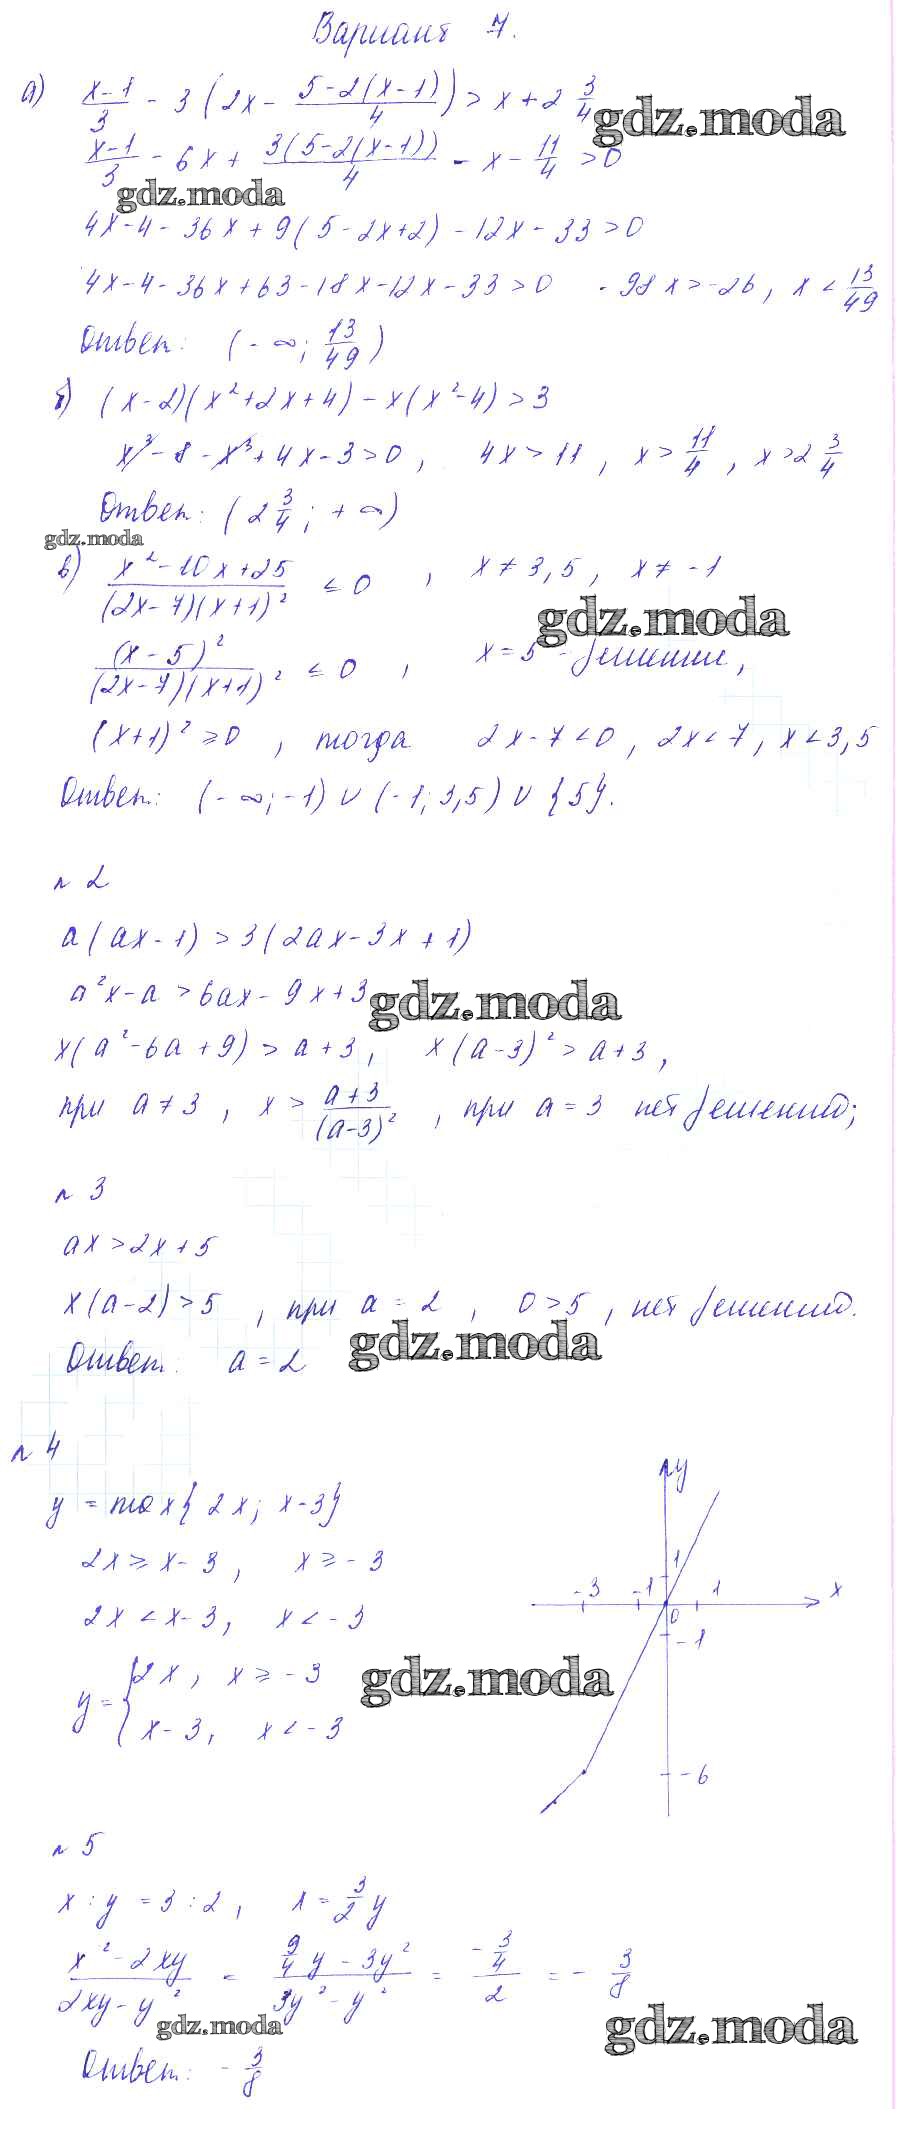 Вариант 7.
а) (x-1)/3 - 3(2x - (5-2(x-1))/4) > x + 2 3/4
gdz.moda
(x-1)/3 - 6x + 3(5-2(x-1))/4 - x - 11/4 > 0
gdz.moda
4x-4-36x+9(5-2x+2)-12x-33>0
4x-4-36x+63-18x-12x-33>0 -98x>-26, x < 13/49
Ответ: (-∞; 13/49)
б) (x-2)(x²+2x+4)-x(x²-4)>3
x³-8-x³+4x-3>0, 4x>11, x > 11/4, x > 2 3/4
Ответ: (2 3/4; +∞)
gdz.moda
в) (x²-10x+25)/((2x-7)(x+1)²) ≤ 0, x≠3,5, x≠-1
gdz.moda
(x-5)²/((2x-7)(x+1)²) ≤ 0, x=5 - решение,
(x+1)²≥0, тогда 2x-7<0, 2x<7, x<3,5
Ответ: (-∞;-1)∪(-1;3,5)∪{5}.
№ 2
a(ax-1)>3(2ax-3x+1)
a²x-a>6ax-9x+3
gdz.moda
x(a²-6a+9)>a+3, x(a-3)²>a+3,
при a≠3, x > (a+3)/(a-3)², при a=3 нет решений;
№ 3
ax>2x+5
x(a-2)>5, при a=2, 0>5, нет решений.
gdz.moda
Ответ: a=2
№ 4
y = max{2x; x-3}
2x≥x-3, x≥-3
2x<x-3, x<-3
y = { 2x, x≥-3
x-3, x<-3
gdz.moda
y
1
-3 -1 1 x
0
-1
-6
№ 5
x:y=3:2, x = 3/2 y
(x²-2xy)/(2xy-y²) = (9/4 y - 3y²)/(3y²-y²) = (-3/4)/2 = -3/8
gdz.moda
gdz.moda
Ответ: -3/8